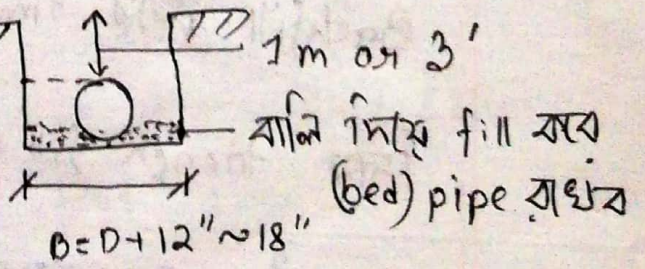 1m or 3'
বালি দিয়ে fill করব
(bed) pipe রাখব
B = D + 12" ~ 18"